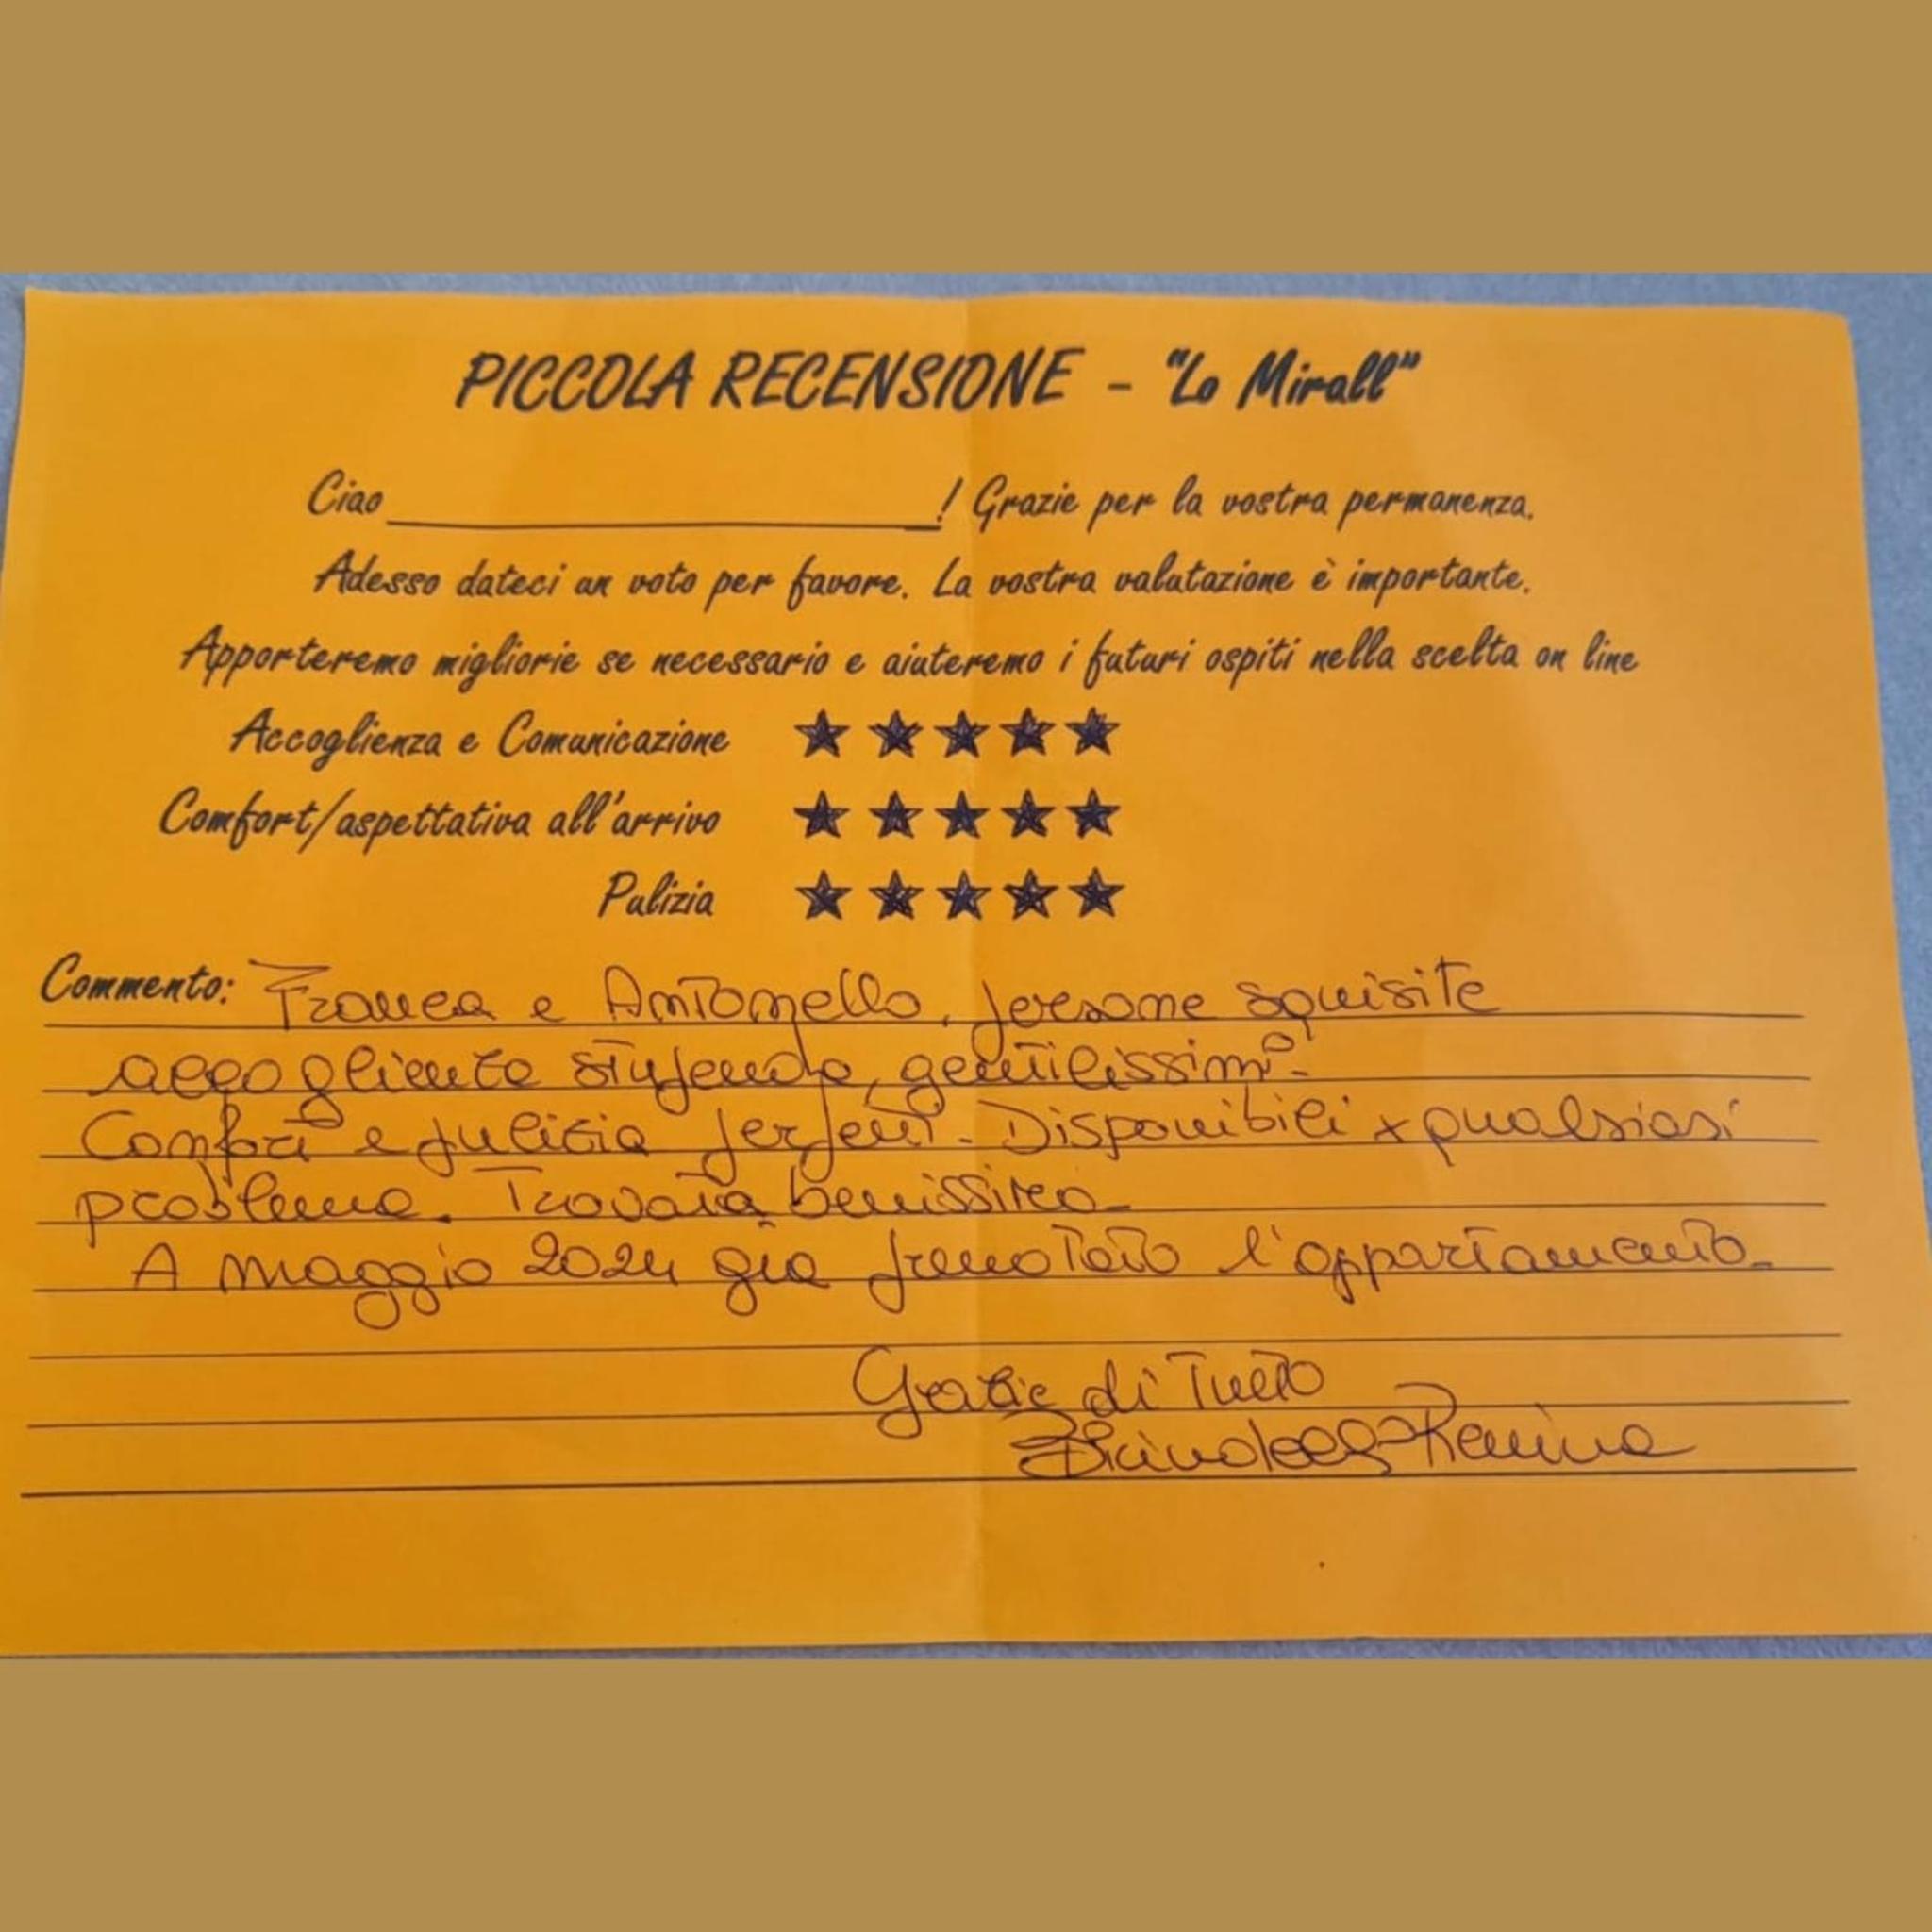 PICCOLA RECENSIONE - "Lo Mirall"
Ciao ____________! Grazie per la vostra permanenza.
Adesso dateci un voto per favore. La vostra valutazione è importante.
Apporteremo migliorie se necessario e aiuteremo i futuri ospiti nella scelta on line
Accoglienza e Comunicazione ★ ★ ★ ★ ★
Comfort/aspettativa all'arrivo ★ ★ ★ ★ ★
Pulizia ★ ★ ★ ★ ★
Commento: Franca e Antonello, persone squisite
accoglienza stupenda, gentilissimi.
Confort e pulizia perfetti. Disponibili x qualsiasi
problema. Trovata benissimo.
A maggio 2024 già prenotato l'appartamento.
Grazie di Tutto